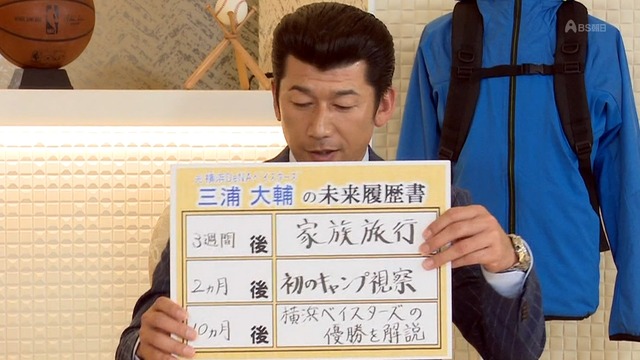 BS朝日
元横浜DeNAベイスターズ
三浦 大輔 の未来履歴書
3週間 後 家族旅行
2ヵ月 後 初のキャンプ視察
10ヵ月 後 横浜ベイスターズの
優勝を解説